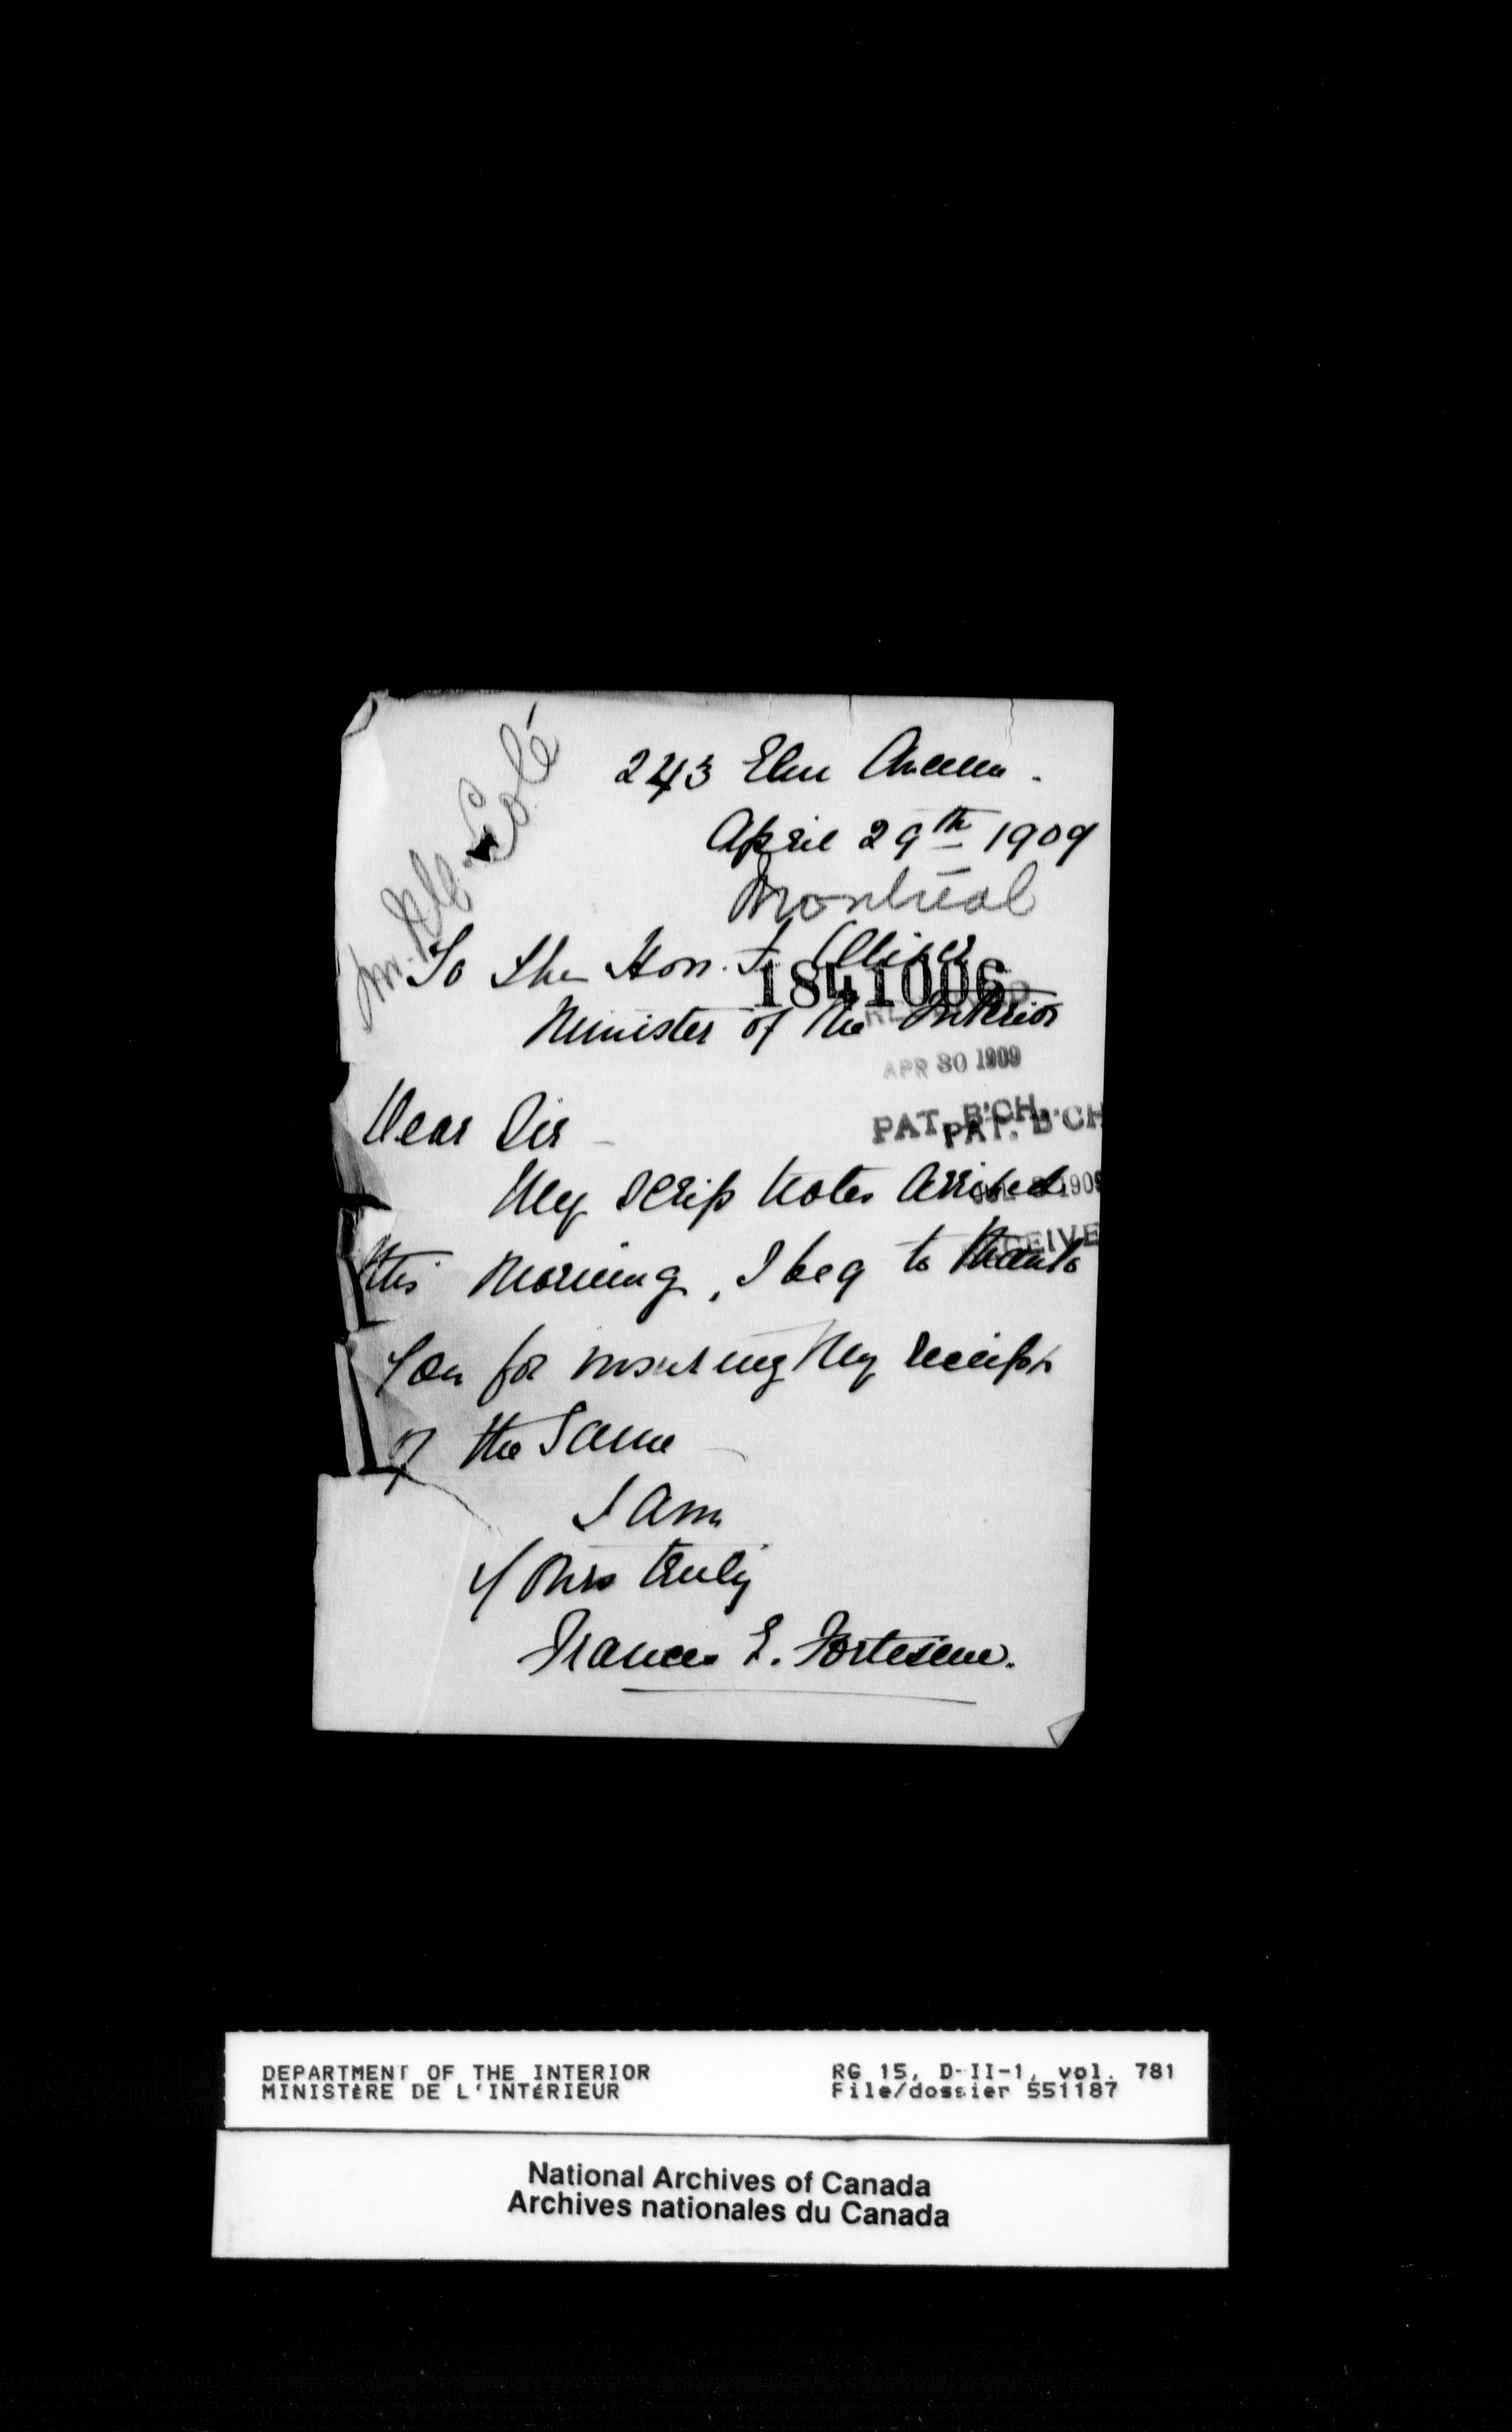 Mr. Côté
243 Elm Avenue.
April 29th 1909
Montreal
To the Hon. F. Oliver
1841006
Minister of the Interior
APR 30 1909
Dear Sir
PAT. B'CH.
PAT. B'CH
My Scrip Notes arrived
1909
this morning, I beg to thank
RECEIVE
you for insuring my receipt
of the Same
I am
Yours truly
Frances E. Fortescue.
DEPARTMENT OF THE INTERIOR
MINISTÈRE DE L'INTÉRIEUR
RG 15, D-II-1, vol. 781
File/dossier 551187
National Archives of Canada
Archives nationales du Canada